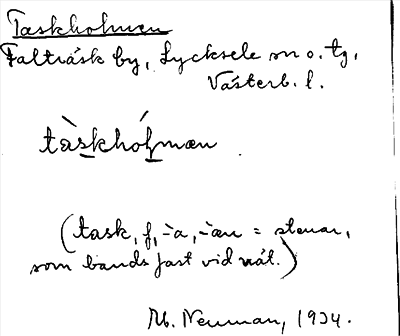 Taskholmen
Falträsk by, Lycksele sn o. tg,
Västerb. l.
tàskhólmæn
(task, f, -a, -æn = stenar,
som bands fast vid nät.)
Neuman, 1934.